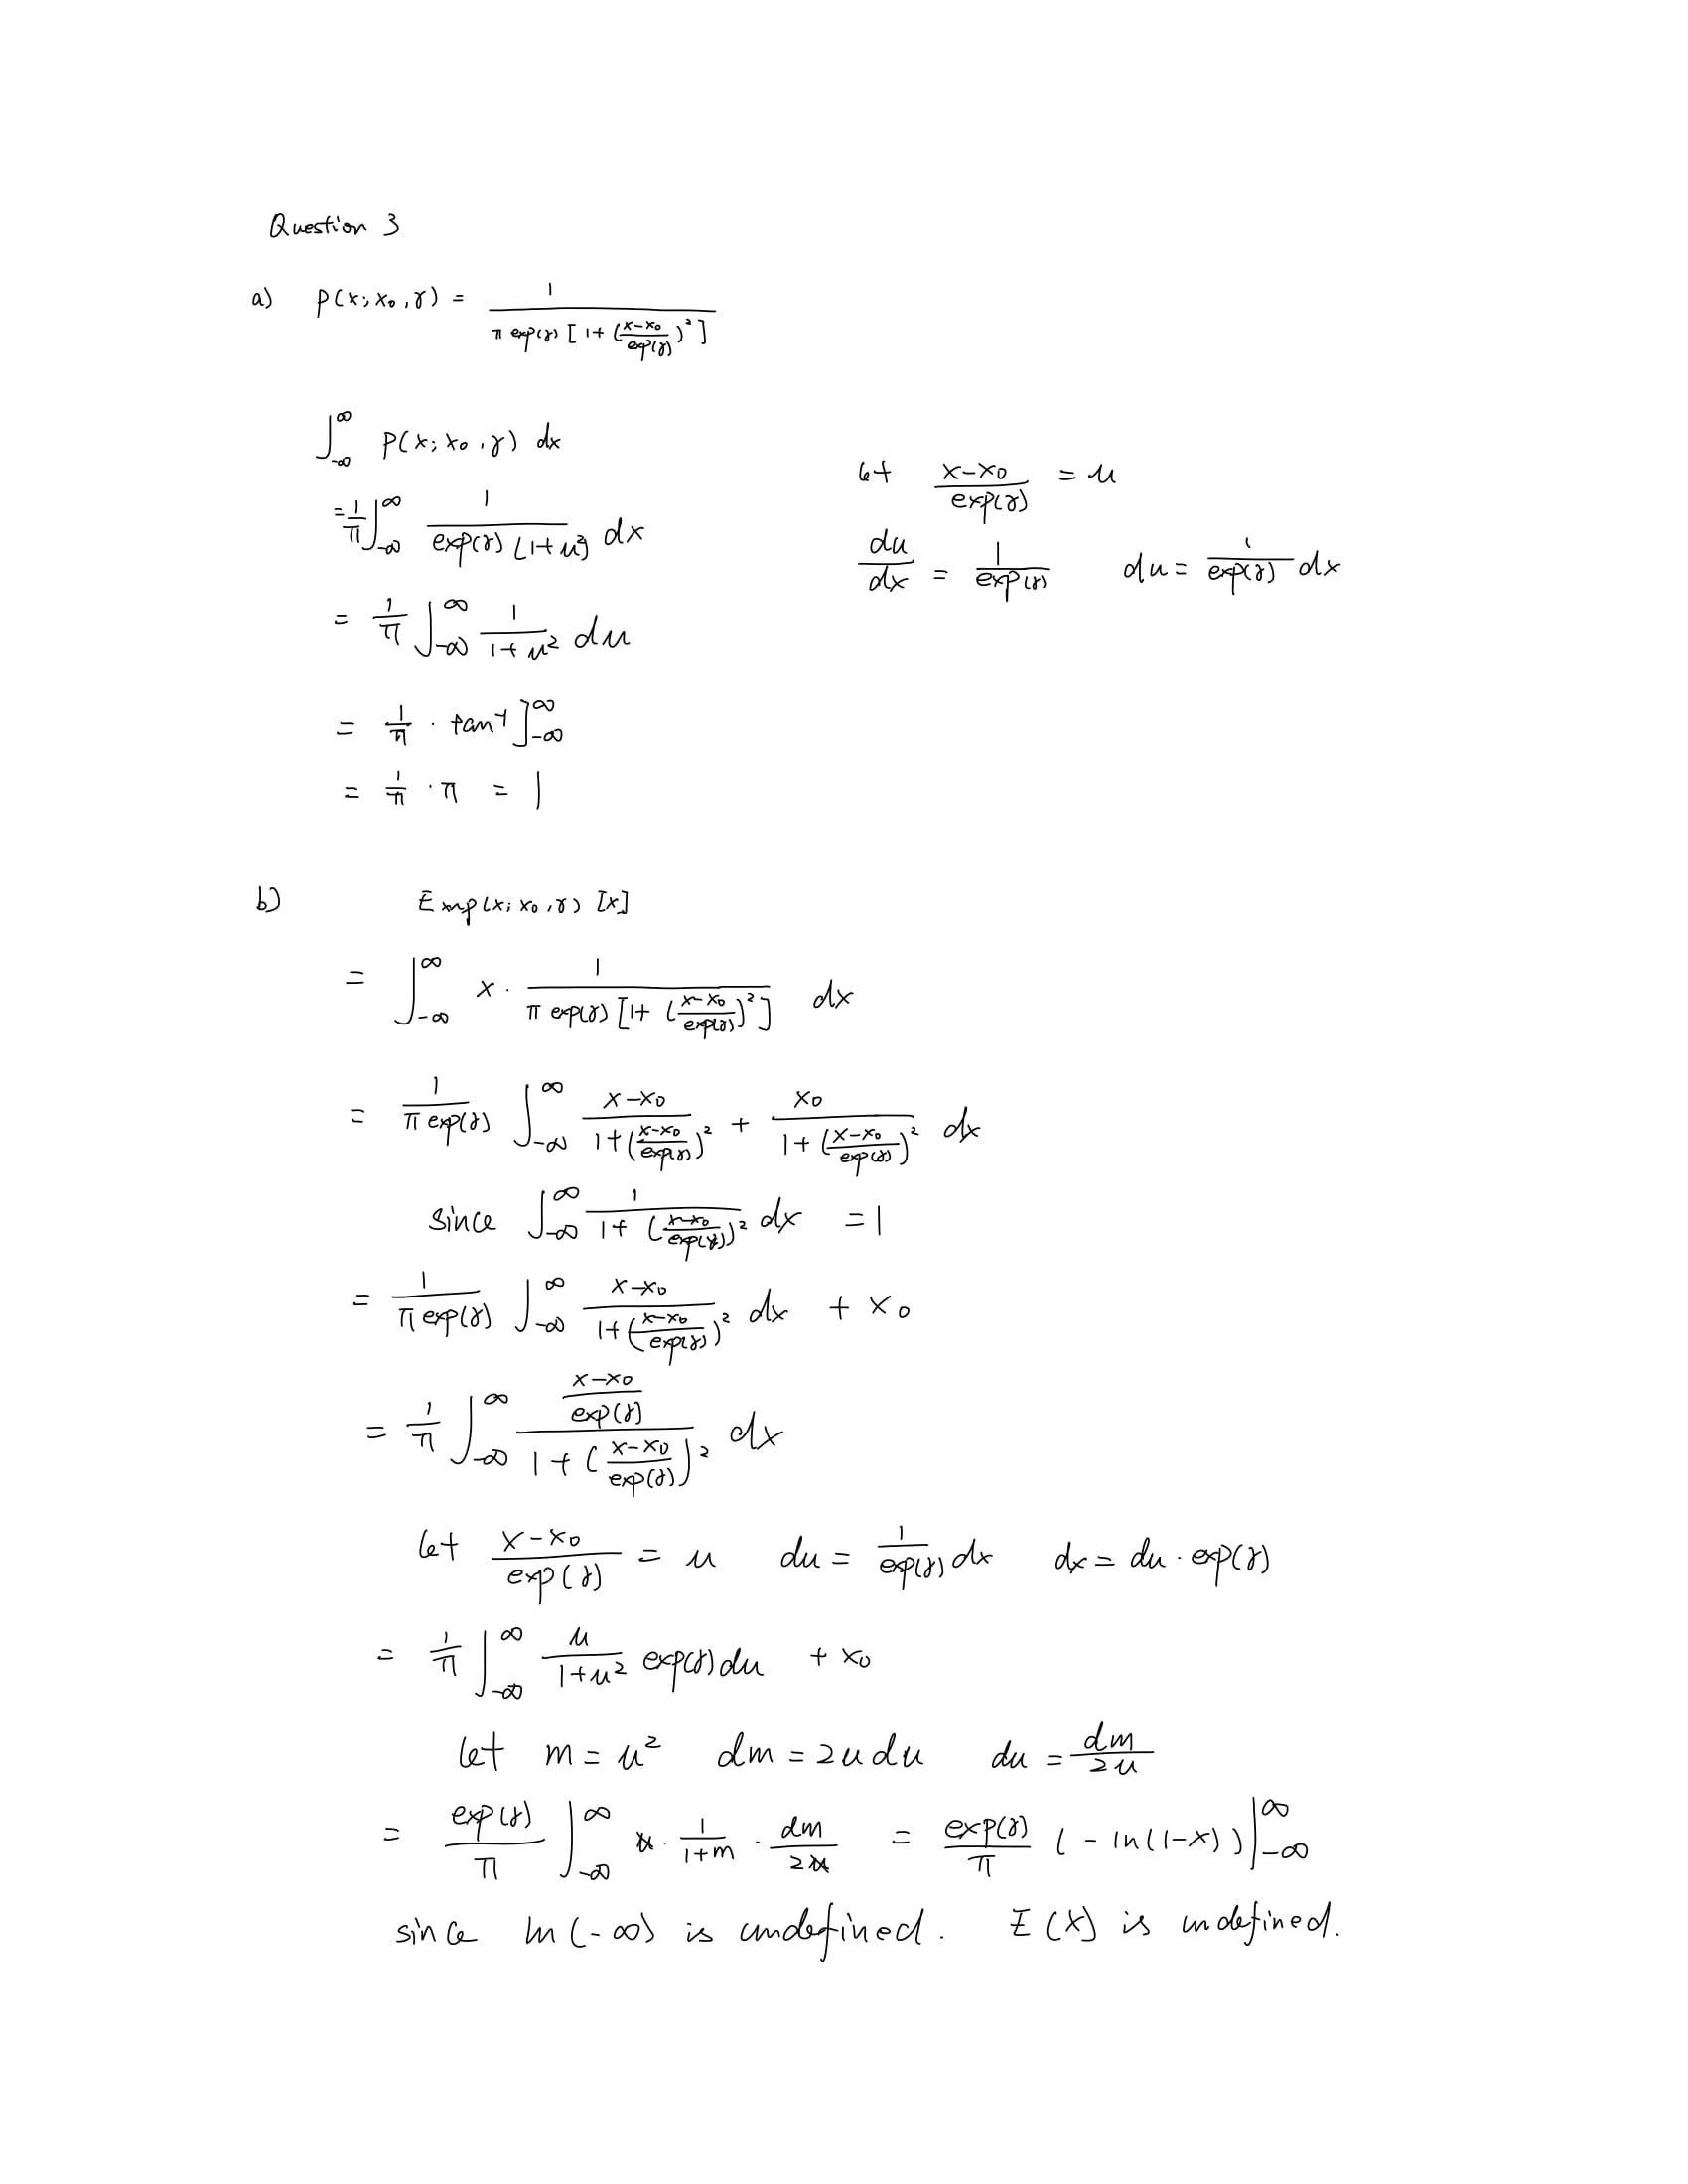 Question 3
a) p(x; x₀, γ) = 1 / (π exp(γ) [1 + ((x-x₀)/exp(γ))²])
∫_{-∞}^{∞} p(x; x₀, γ) dx
let (x-x₀)/exp(γ) = u
= 1/π ∫_{-∞}^{∞} 1 / (exp(γ) [1+u²]) dx
du/dx = 1/exp(γ)   du = 1/exp(γ) dx
= 1/π ∫_{-∞}^{∞} 1/(1+u²) du
= 1/π · tan⁻¹ ]_{-∞}^{∞}
= 1/π · π = 1
b) E x~p(x; x₀, γ) [x]
= ∫_{-∞}^{∞} x · 1 / (π exp(γ) [1 + ((x-x₀)/exp(γ))²]) dx
= 1/(π exp(γ)) ∫_{-∞}^{∞} (x-x₀) / (1+((x-x₀)/exp(γ))²) + x₀ / (1+((x-x₀)/exp(γ))²) dx
since ∫_{-∞}^{∞} 1 / (1+((x-x₀)/exp(γ))²) dx = 1
= 1/(π exp(γ)) ∫_{-∞}^{∞} (x-x₀) / (1+((x-x₀)/exp(γ))²) dx + x₀
= 1/π ∫_{-∞}^{∞} ((x-x₀)/exp(γ)) / (1+((x-x₀)/exp(γ))²) dx
let (x-x₀)/exp(γ) = u   du = 1/exp(γ) dx   dx = du · exp(γ)
= 1/π ∫_{-∞}^{∞} u/(1+u²) exp(γ) du + x₀
let m = u²   dm = 2u du   du = dm/2u
= exp(γ)/π ∫_{-∞}^{∞} u · 1/(1+m) · dm/2u = exp(γ)/π (-ln(1-x)) |_{-∞}^{∞}
since ln(-∞) is undefined. E(X) is undefined.